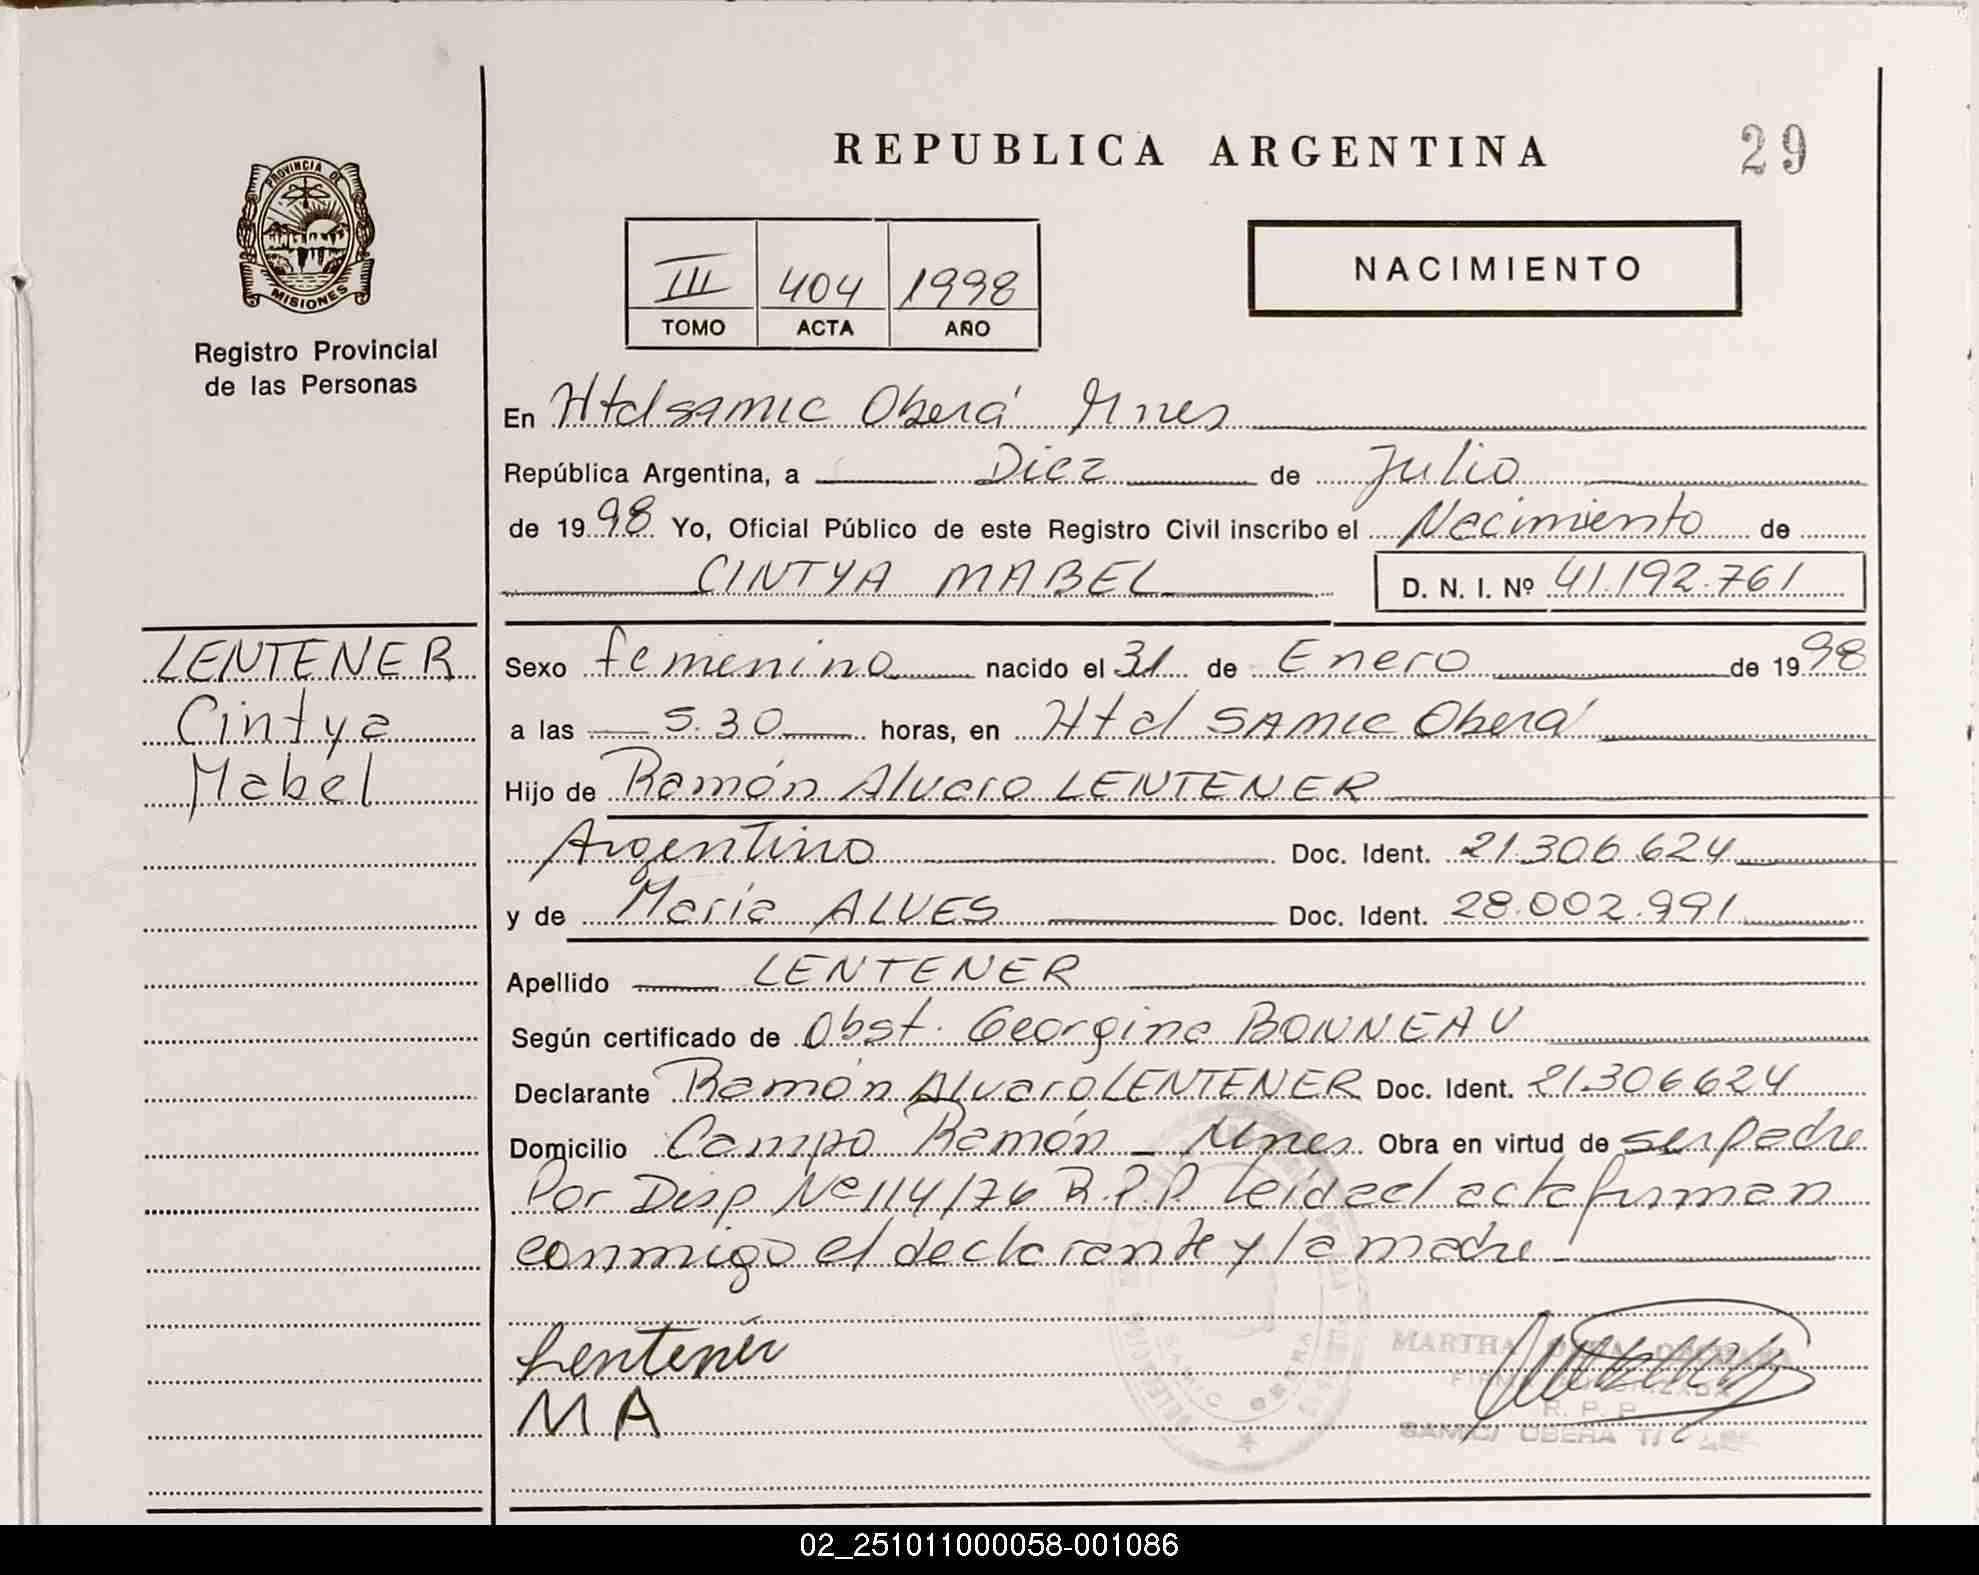 REPUBLICA ARGENTINA
29
PROVINCIA DE
MISIONES
Registro Provincial
de las Personas
III 404 1998
TOMO ACTA AÑO
NACIMIENTO
En Htdl SAMIC Oberá Mnes
República Argentina, a Diez de Julio
de 1998 Yo, Oficial Público de este Registro Civil inscribo el Nacimiento de
CINTYA MABEL D. N. I. Nº 41.192.761
LENTENER
Cintya
Mabel
Sexo femenino nacido el 31 de Enero de 1998
a las 5.30 horas, en Htdl SAMIC Oberá
Hijo de Ramón Alvaro LENTENER
Argentino Doc. Ident. 21.306.624
y de María ALVES Doc. Ident. 28.002.991
Apellido LENTENER
Según certificado de Obst. Georgina BONNEAU
Declarante Ramón Alvaro LENTENER Doc. Ident. 21306624
Domicilio Campo Ramón - Mnes. Obra en virtud de ser padre
Por Disp. Nº 114/76 R.P.P. leída el acta firman
conmigo el declarante y la madre
Lentener
MARTHA
MA
R. P. P.
OBERA
02_251011000058-001086